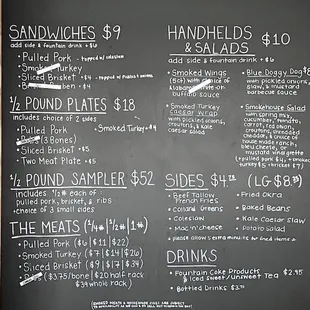 SANDWICHES $9
add side & fountain drink + $6
• Pulled Pork - topped w/ coleslaw
• Smoked Turkey
• Sliced Brisket + $4 - topped w/
1/2 POUND PLATES $18
includes choice of 2 sides
• Pulled Pork
• Smoked Turkey + $4
(3 Bones)
• Sliced Brisket + $5
• Two Meat Plate + $5
1/2 POUND SAMPLER $52
includes 1/2# each of
pulled pork, brisket, & ribs
• choice of 3 small sides
THE MEATS (1/4#|1/2#|1#)
• Pulled Pork ($6|$11|$22)
• Smoked Turkey ($7|$14|$26)
• Sliced Brisket ($9|$17|$34)
($3.75/bone|$20 half rack
$39 whole rack)
HANDHELDS
& SALADS $10
add side & fountain drink + $6
• Smoked Wings
(5ct) with choice of
Alabama
buffalo sauce
• Blue Doggy Dog $8
with pickled onions,
slaw, & mustard
barbecue sauce
• Smoked Turkey
Caesar Wrap
with pickled onions,
croutons, & kale
caesar salad
• Smokehouse Salad
with spring mix,
cucumber, tomato,
carrot, red onion,
croutons, shredded
cheddar & choice of
house made ranch,
bleu cheese, or
mustard vinaigrette
+ pulled pork $4, + smoked
turkey $5, + brisket $7
SIDES $4.
(LG $8.
• Beef Tallow
French Fries
• Collard Greens
• Coleslaw
• Mac 'n' cheese
• Fried Okra
• Baked Beans
• Kale Caesar Slaw
• Potato Salad
• please allow 5 extra minutes for fried items •
DRINKS
• Fountain Coke Products
& Iced Sweet/Unsweet Tea $2.95
• Bottled Drinks